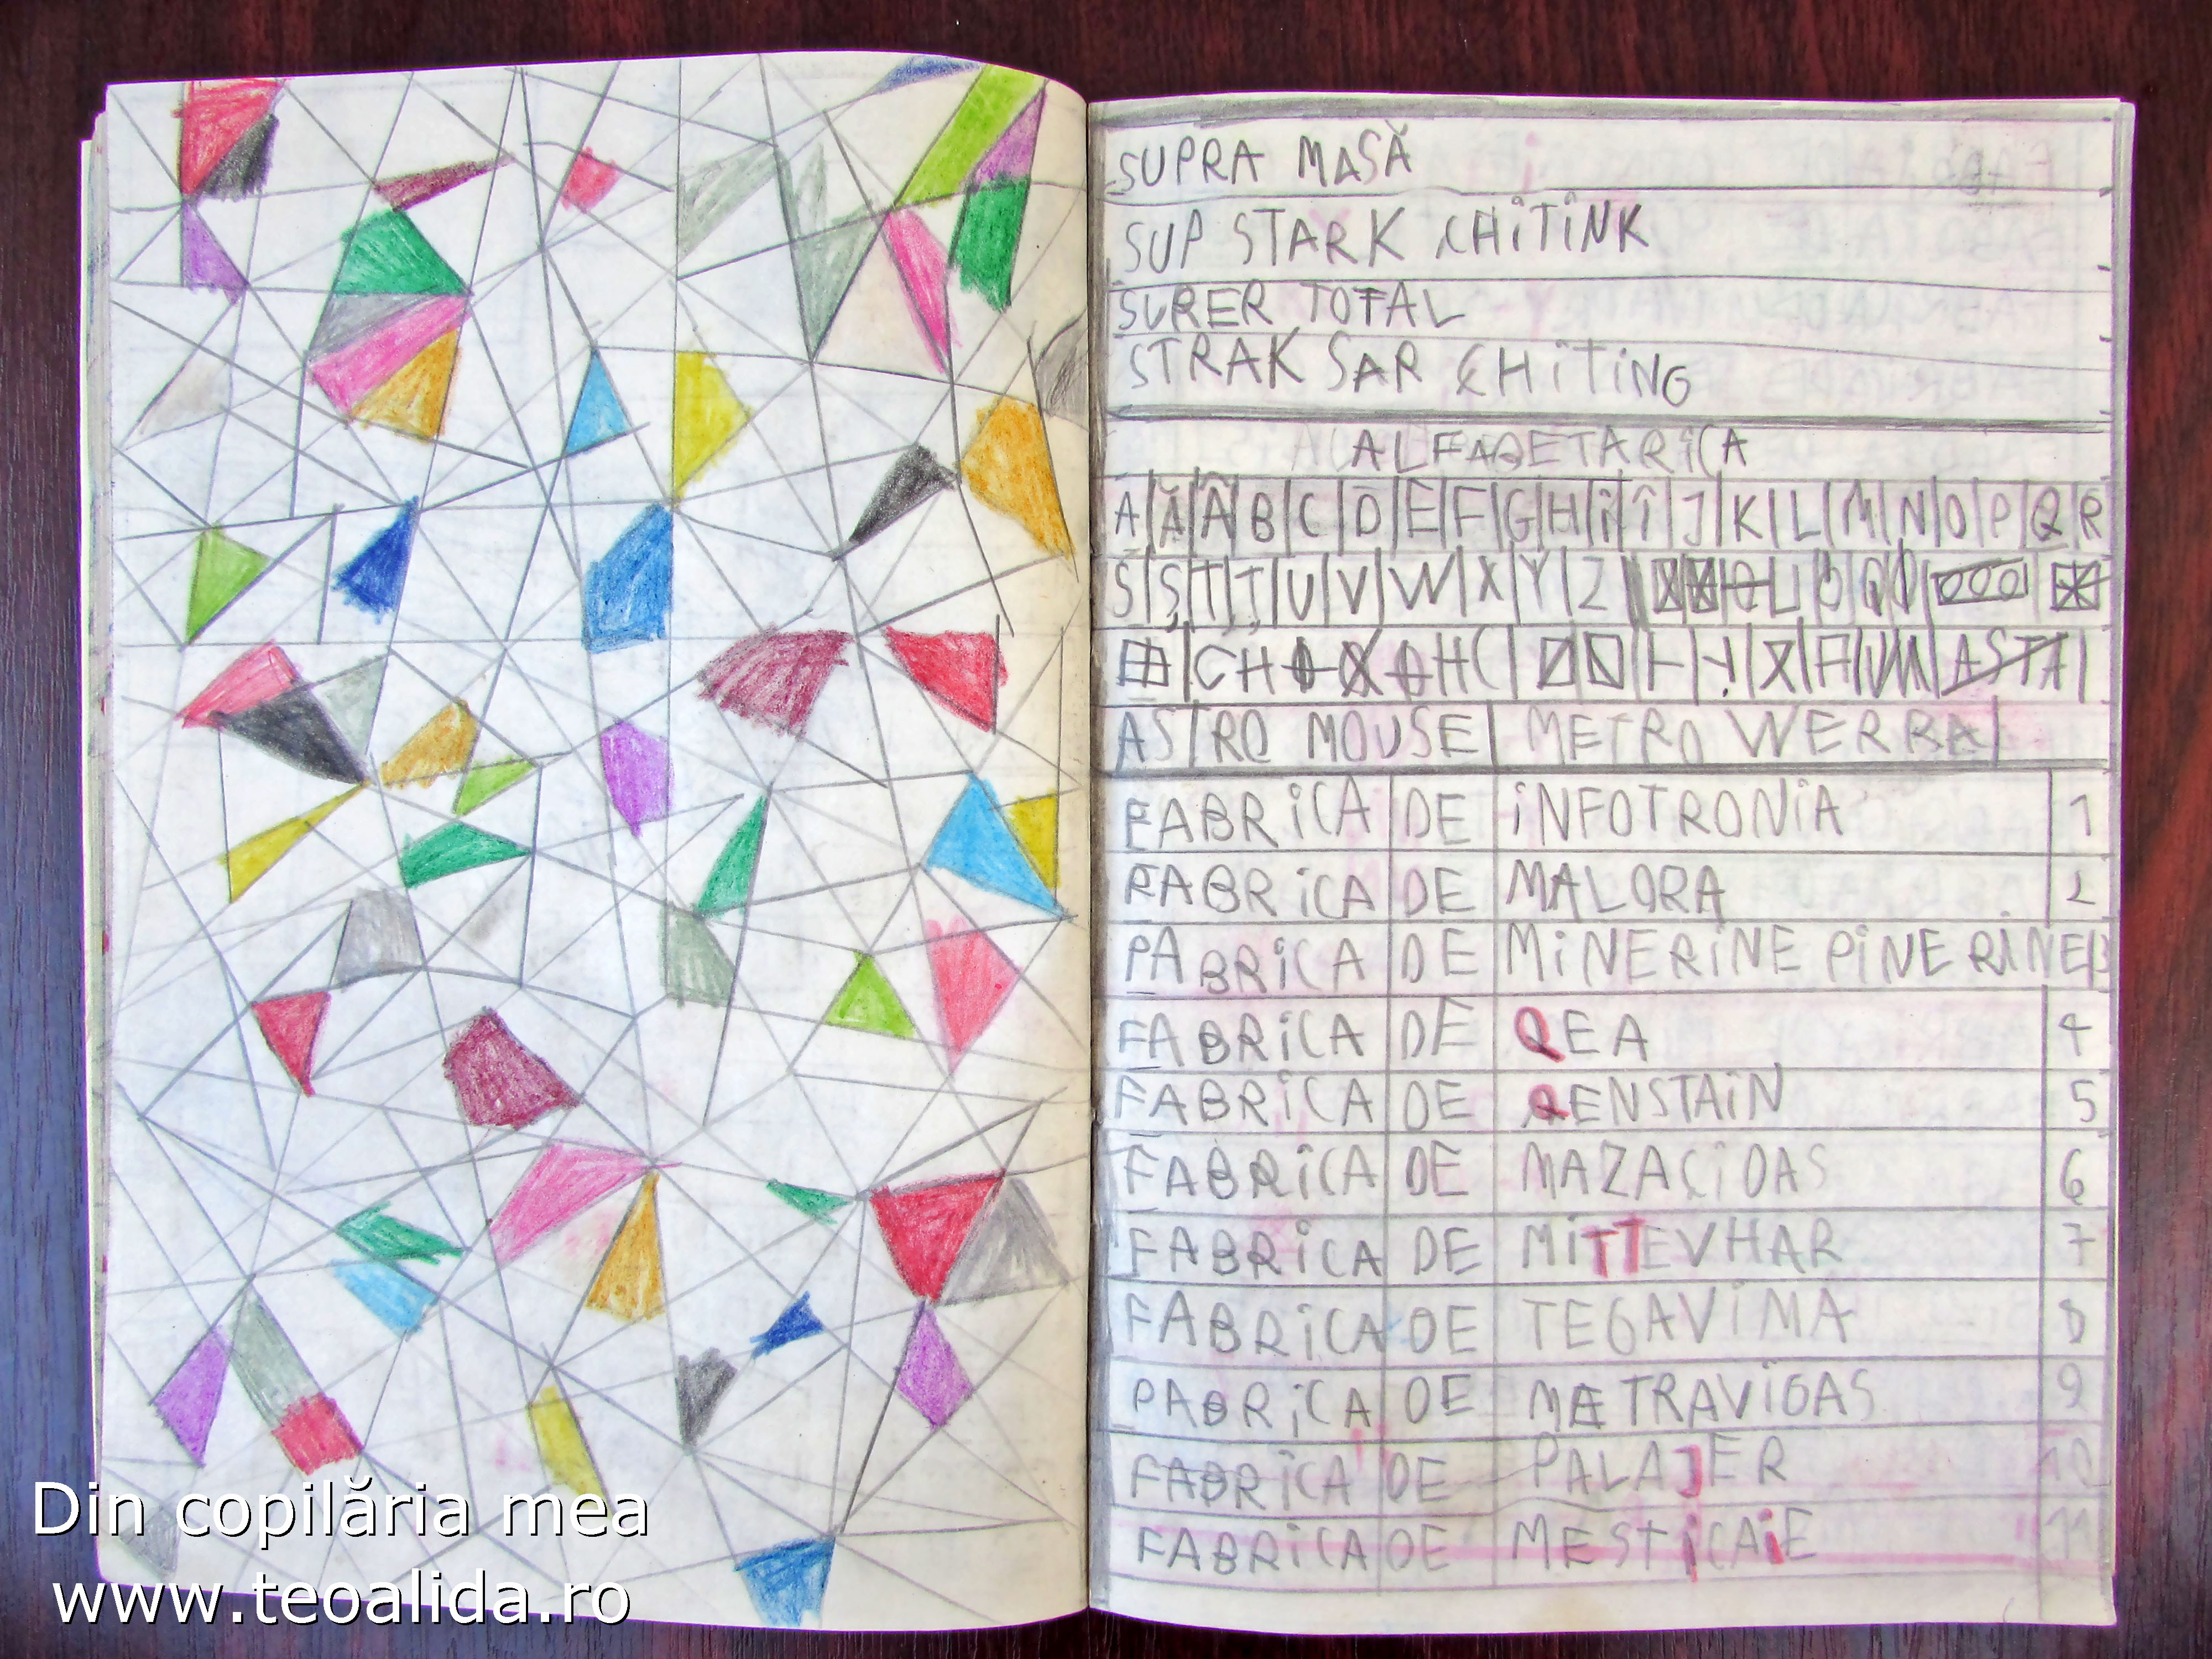 SUPRA MASĂ
SUP STARK CHiTiNK
SURER TOTAL
STRAK SAR CHiTiNG
ALFABETARiCA
A Ă Â B C D E F G H i Î J K L M N O P Q R
S Ș T Ț U V W X Y Z
CH HC ASTA
ASTRO MOUSE METRO WERBA
FABRiCA DE iNFOTRONiA 1
FABRiCA DE MALORA 2
FABRiCA DE MiNERiNE PiNERiNE
FABRiCA DE QEA 4
FABRiCA DE QENSTAiN 5
FABRiCA DE MAZACiDAS 6
FABRiCA DE MiTTEVHAR 7
FABRiCA DE TEGAViMA 8
FABRiCA DE METRAViGAS 9
FABRiCA DE PALAJER 10
FABRiCA DE MESTiCAiE 11
Din copilăria mea
www.teoalida.ro